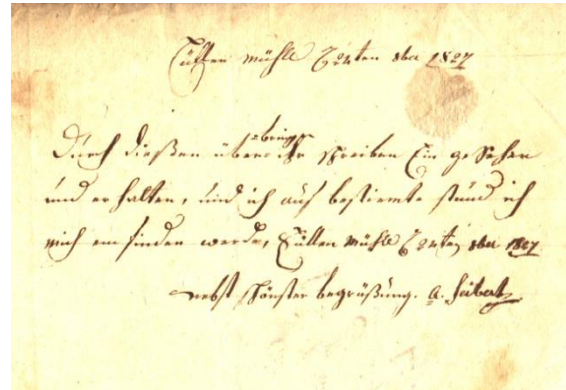 Tüllen Mühle 24ten 8ber 1827
Durch dießen überbringer ihr schreiben Ein gesehen
und erhalten, und ich auf bestimte stund ich
mich einfinden werde, Tüllen Mühle 24ten 8ber 1827
nebst schönster begrüßung. A. Seibertz